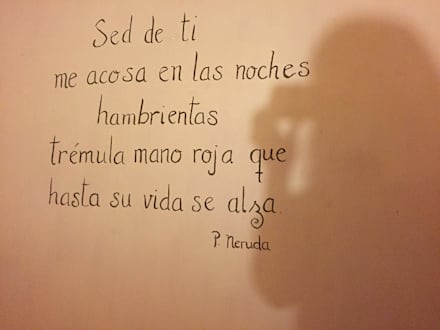 Sed de ti
me acosa en las noches
hambrientas
trémula mano roja que
hasta su vida se alza.
P. Neruda